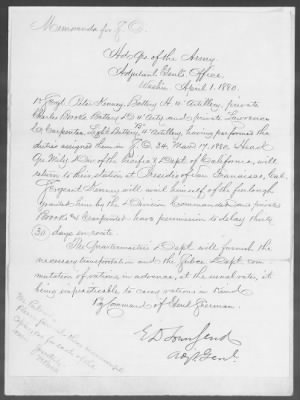 Memoranda for
Hd Qrs of the Army.
Adjutant Genl's Office.
April 1. 1880.
1st Sergt. Peter Kenney, Battery H Artillery, private
Charles Brooks Battery Arty and private Lawrence
Carpenter, Light Battery Artillery, having performed the
duties assigned them in 24, Mar. 17, 1880, Head
Qrs Mily Div of the Pacific & Dept of California, will
return to their station at Presidio of San Francisco, Cal.
Sergeant Kenney will avail himself of the furlough
granted him by the Division Commander and privates
Brooks & Carpenter have permission to delay thirty
30 days en route.
The Quartermaster's Dept will furnish the
necessary transportation and the Subs. Dept com-
mutation of rations, in advance, at the usual rates, it
being impracticable to carry rations in kind.
By Command of Genl Sherman.
E D Townsend
Adj. Genl.